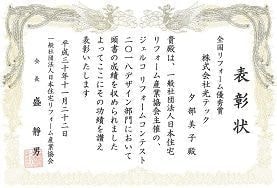 表彰状
全国リフォーム優秀賞
株式会社光テック
夕部美子殿
貴殿は、一般社団法人日本住宅
リフォーム産業協会主催の、
ジェルコ リフォームコンテスト
二〇一八デザイン部門において
頭書の成績を収められました
よってここにその功績を讃え
表彰いたします
平成三十年十一月二十二日
一般社団法人日本住宅リフォーム産業協会
会長 盛静男